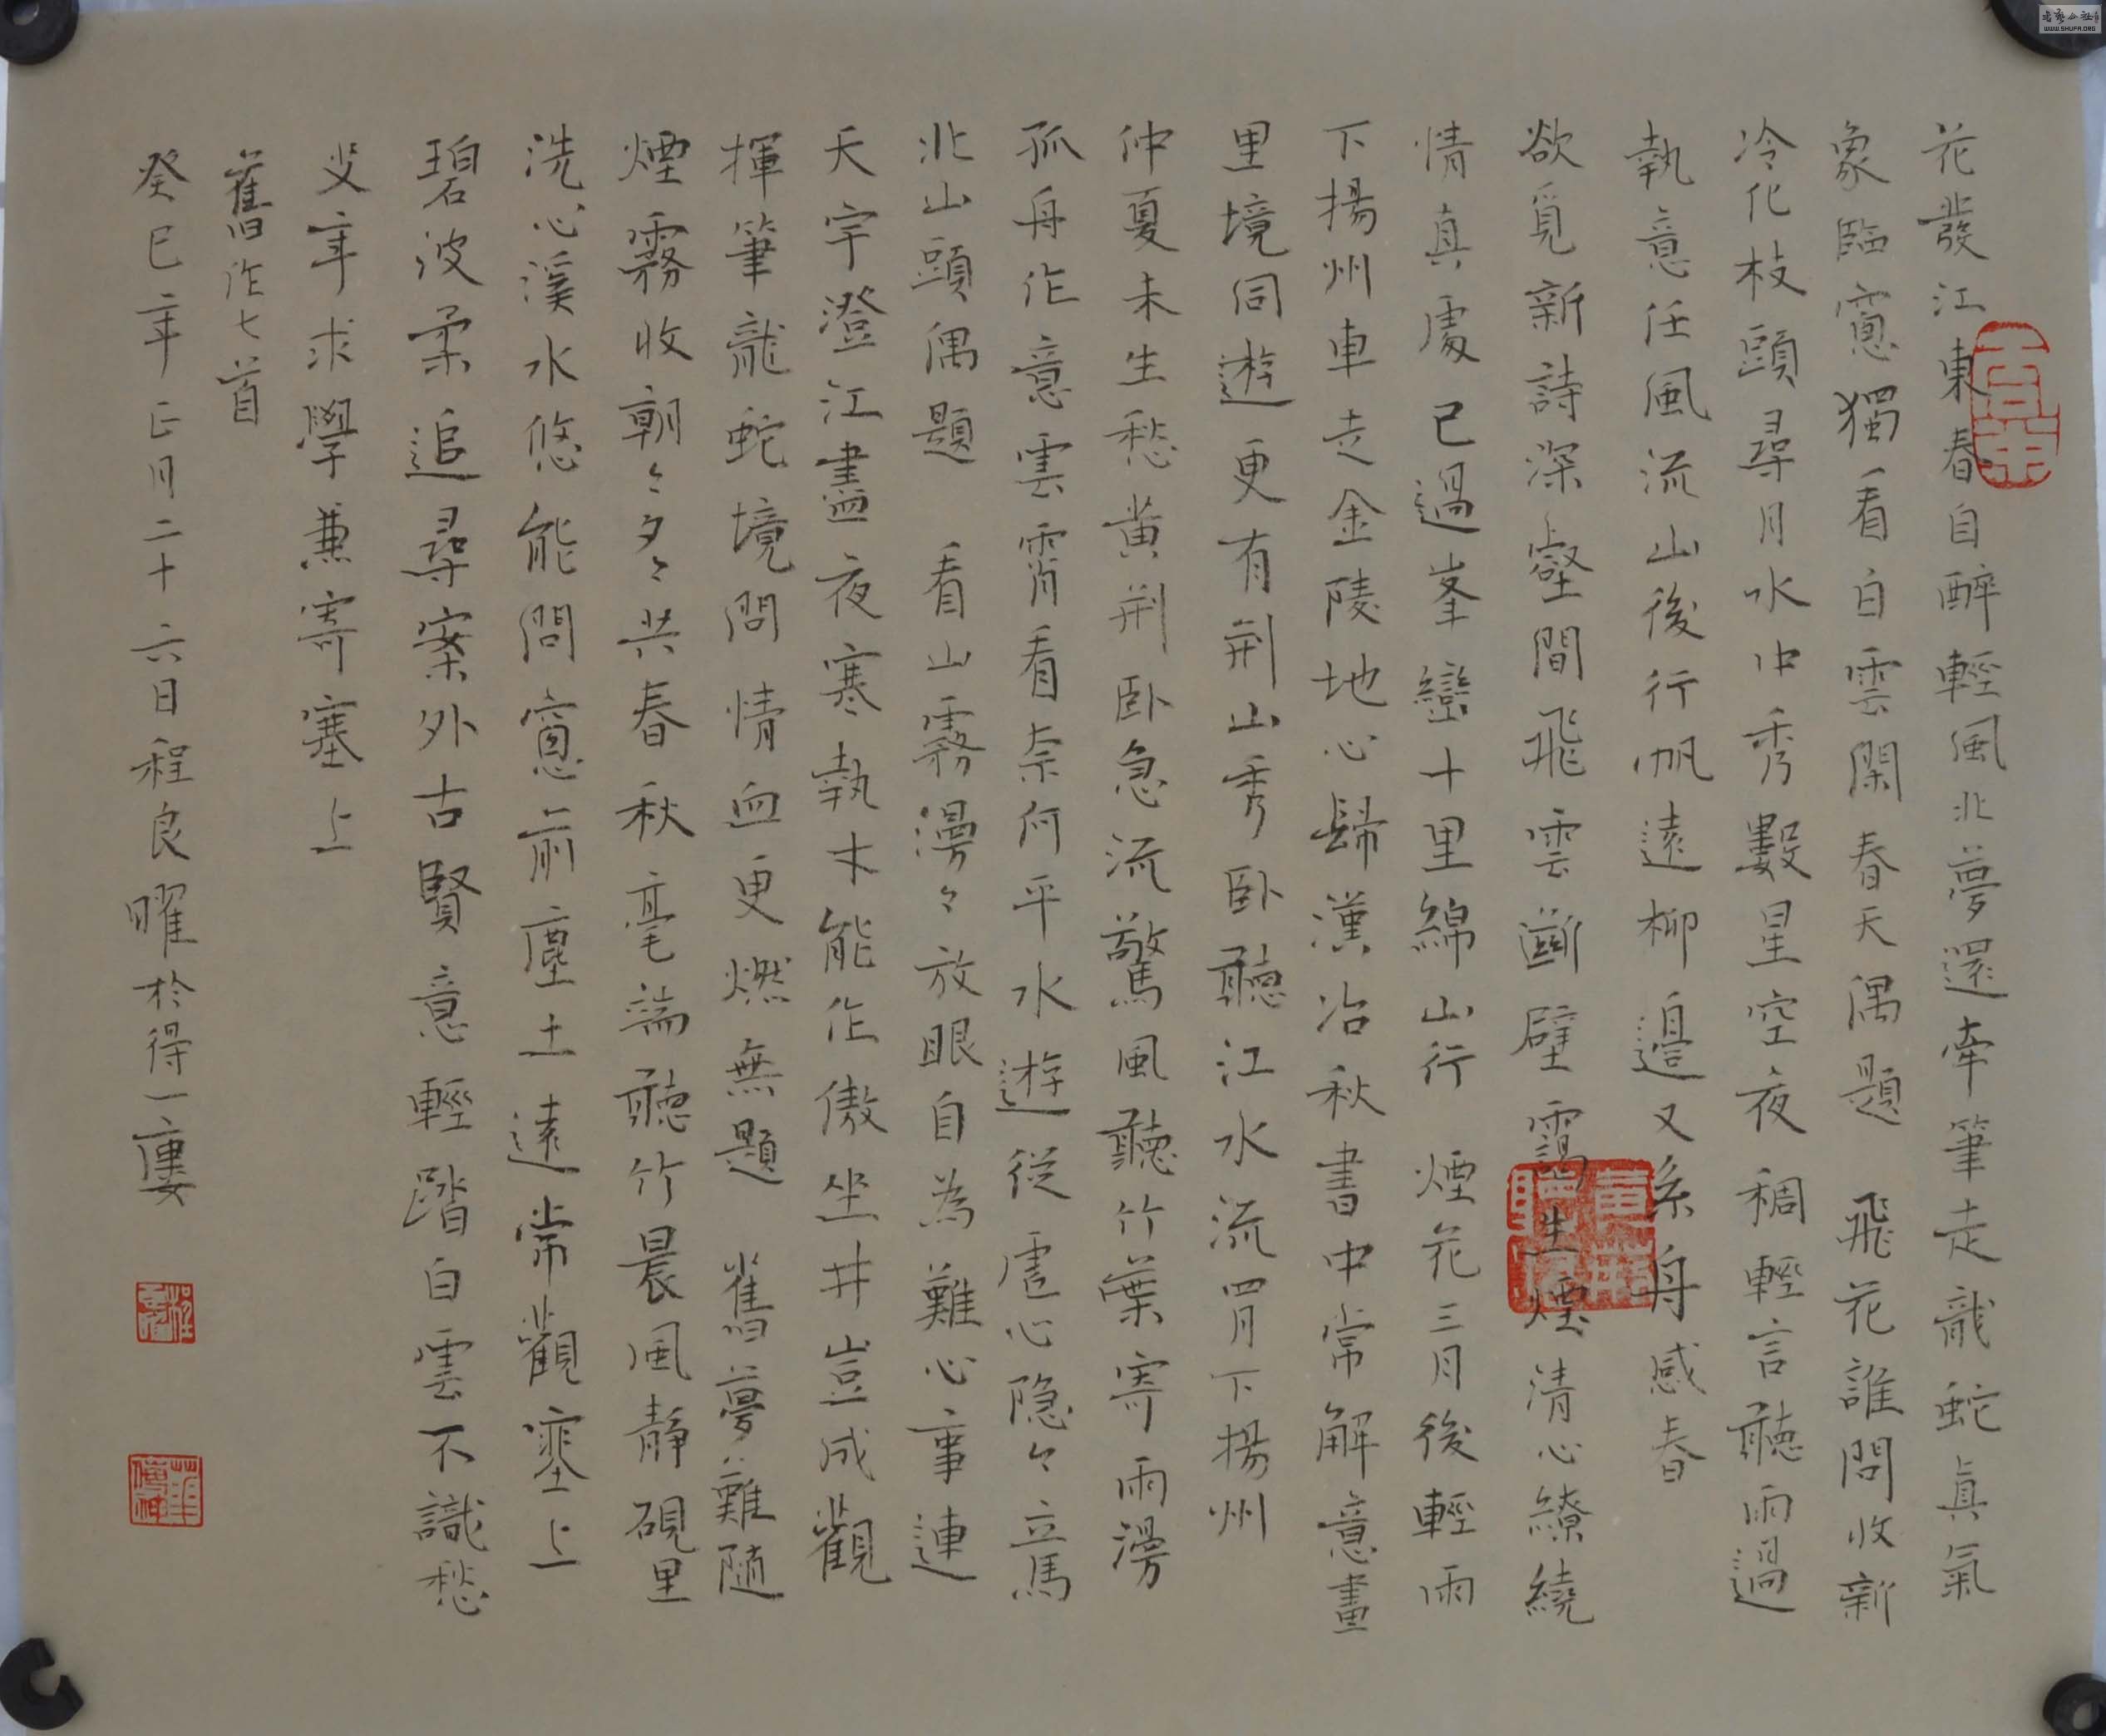 花發江東春自醉輕風北夢還牽筆走龍蛇真氣
象臨窻獨看白雲閑春天偶題 飛花誰問收新
冷化枝頭尋月水中秀數星空夜稠輕言聽雨過
執意任風流山後行帆遠柳邊又系舟感春
欲覓新詩深壑間飛雲斷壁靄生煙清心繚繞
情真處已過峯巒十里綿山行 煙花三月後輕雨
下揚州車走金陵地心歸漢冶秋書中常解意畫
里境同遊更有荊山秀卧聽江水流胃下揚州
仲夏未生愁黄荊卧急流驚風聽竹葉寄雨漫
孤舟作意雲霄看奈何平水遊從虛心隐々立馬
北山頭偶題 看山霧漫々放眼自為難心事連
天宇澄江盡夜寒執木能作傲坐井豈成觀
揮筆龍蛇境問情血更燃無題 舊夢難隨
煙霧收朝々夕々共春秋毫端聽竹晨風靜硯里
洗心溪水悠能問窻前塵土遠常觀塞上
碧波柔追尋案外古賢意輕踏白雲不識愁
年求學兼寄塞上
舊作七首
癸巳年正月二十六日程良曜於得一廔
書法公社
WWW.SHUFA.ORG